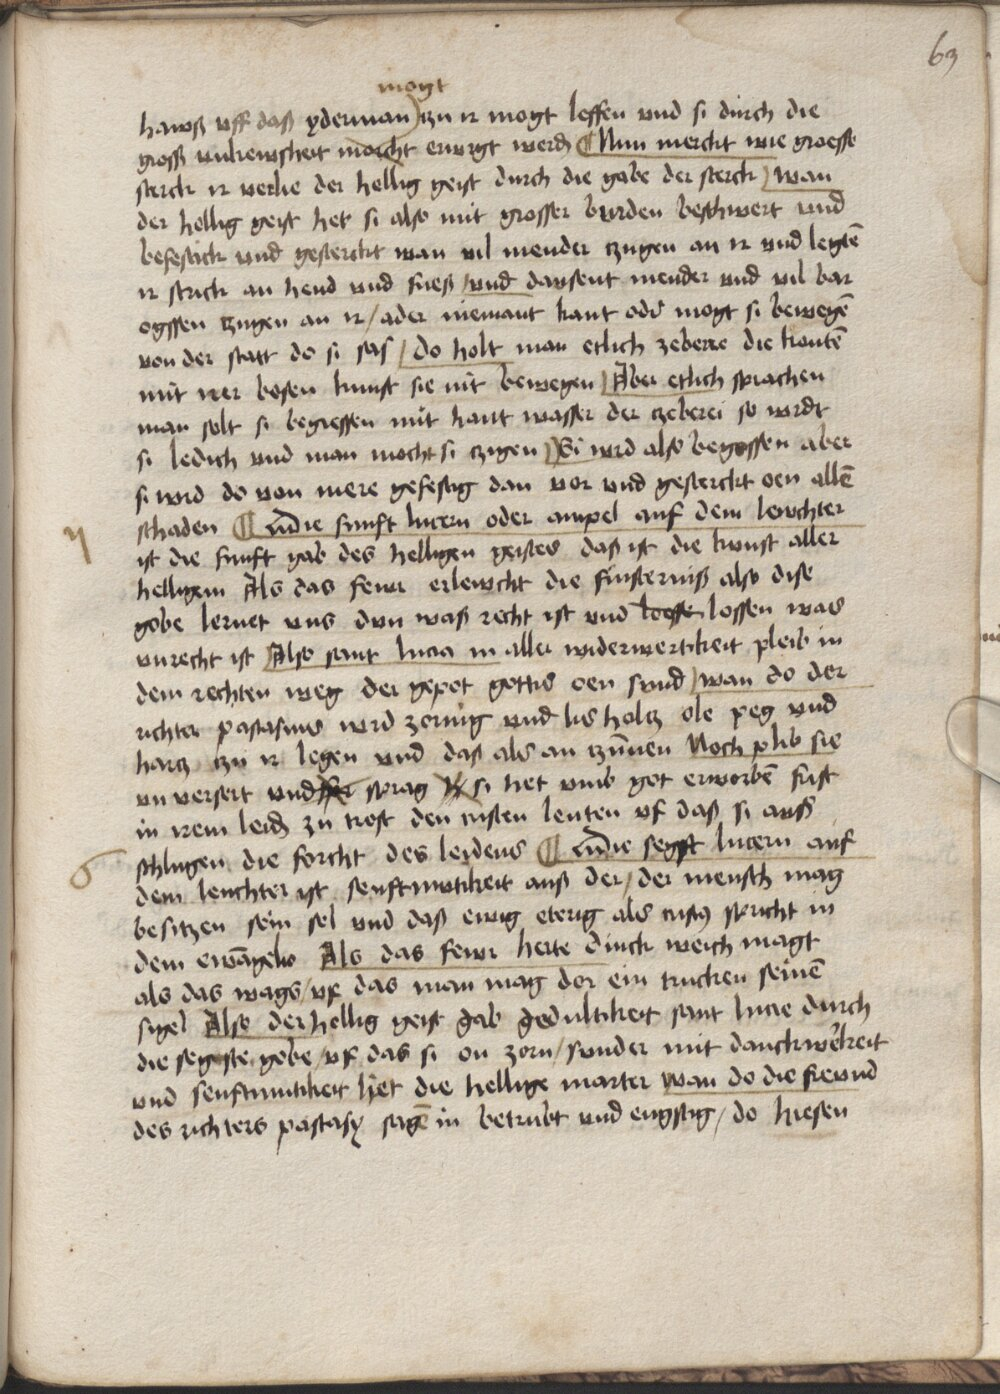 63
mogt
hawß vff daß yderman zu ir mogt leffen vnd si durch die
groß vnkewsheit mocht erwrgt werden Nun merckt wie groesse
sterck ir verlie der hellig geist durch die gabe der sterck wan
der hellig geist het si also mit grosser burden beschwert vnd
befestich vnd gesterckt wan vil mender tzugen an ir vnd legtē
ir strick an hend vnd fueß vnd dausent mender vnd vil bar
ogssen tzugen an ir / ader niemant kant oder mogt si bewegē
von der statt do si saß / do holt man etlich zeberer die kontē
mit irer bosen kunst sie nit bewegen Aber etlich sprachen
man solt si begiessen mit hant wasser der tzeberei so wrdt
si ledich vnd man mocht si tzigen Si wrd also begossen aber
si wrd do von mere gefestig dan vor vnd gesterckt oen allē
schaden Die funft lucern oder ampel auf dem lewchter
5
ist die funft gab des helligen geistes daß ist die kunst aller
helligem Als das fewr erlewcht die finsterniß also dise
gobe lernet vns dun waß recht ist vnd loesse lossen was
vnrecht ist Also sant lucia in aller widerwertikeit pleib in
dem rechten weg der gepot gottis oen sund wan do der
richter pastasius wrd zornig vnd lis holtz ole peg vnd
hartz tzu ir legen vnd daß als an tzunnen Noch plib sie
vn versert vnd sprag si het vmb got erworbē frist
in irem leidē zu trost den cristen leuten vf daß si auß
schlugen die forcht des leidens Die segst lucern auf
6
dem leuchter ist senftmutikeit auß der / der mensch mag
besitzen sein sel vnd daß ewig eterig als cristꝯ spricht in
dem ewāgelio Als das fewr herte dinck weich magt
als das wags / vf das man mag dor ein trucken seinē
sigel Also der hellig geist gab gedultikeit sant lucie durch
die segste gobe / vf das si on zorn / sunder mit danckwerkeit
vnd senftmutikeit het die hellige marter wan do die frewnd
des richters pastasy sagē in betrubt vnd engstig / do hiesen